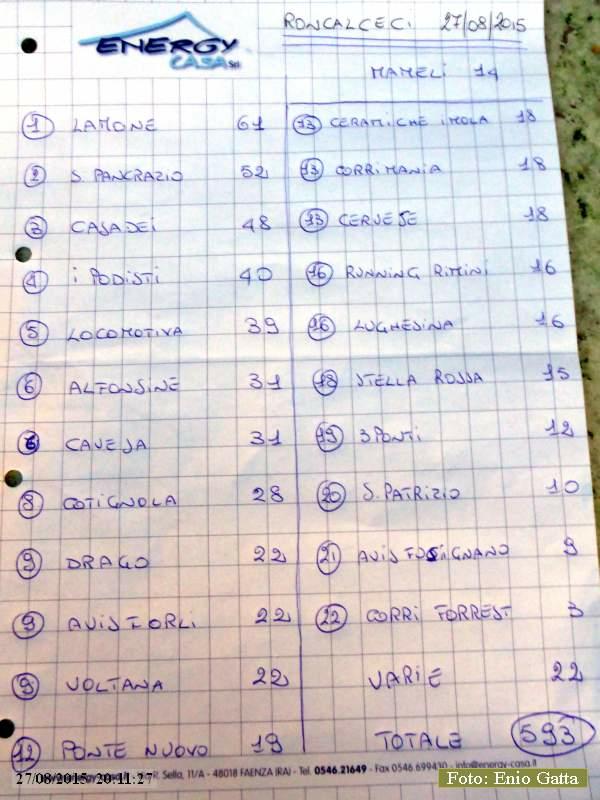 ENERGY
CASA Srl
RONCALCECI 27/08/2015
MAMELI 14
1 LAMONE 61
2 S. PANCRAZIO 52
3 CASADEI 48
4 i PODISTI 40
5 LOCOMOTIVA 39
6 ALFONSINE 31
6 CAVEJA 31
8 COTIGNOLA 28
9 DRAGO 22
9 AVIS FORLI 22
9 VOLTANA 22
12 PONTE NUOVO 19
13 CERAMICHE IMOLA 18
13 CORRIMANIA 18
13 CERVESE 18
16 RUNNING RIMINI 16
16 LUGHESINA 16
18 STELLA ROSSA 15
19 3PONTI 12
20 S. PATRIZIO 10
21 AVIS FOSIGNANO 9
22 CORRI FORREST 3
VARIE 22
TOTALE 593
R. Sella, 11/A - 48018 FAENZA (RA) - Tel. 0546.21649 - Fax 0546.699430 - info@energy-casa.it
27/08/2015 20:11:27
Foto: Enio Gatta